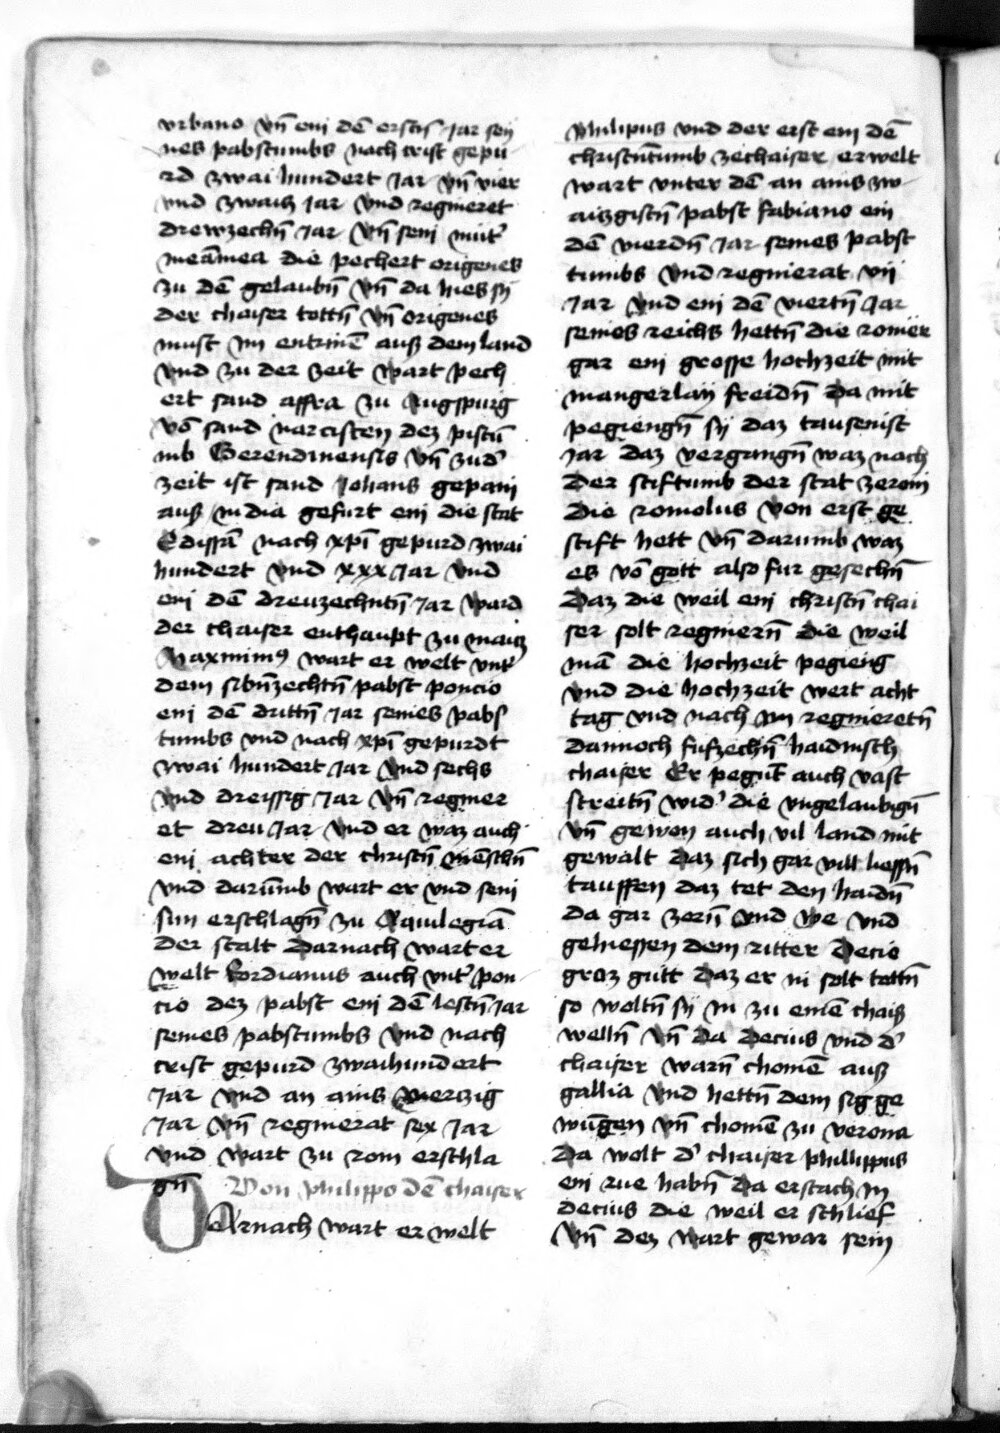 vrbano vn̄ eni dē ersten jar sey
nes pabstumbs nach crist gepu
rd zwai hundert jar vn̄ vier
vnd zwaiz jar vnd regnieret
drewzechn̄ jar vn̄ seni mut'
meāmea die pechert origenes
zu dē gelaubn̄ vn̄ da hies sy
der chaiser tottn̄ vn̄ origenes
must im entrinē auß dem land
vnd zu der zeit wart pech
ert sand affra zu Augspurg
vō sand narcisten dez pistū
mb Gerendinensis vn̄ zu d'
zeit ist sand Johans gepani
auß india gefurt eni die stat
Edissā nach xpī gepurd zwai
hundert vnd xxx jar vnd
eni dē dreuzechntn̄ jar ward
der chaiser enthaupt zu maitz
Maximin9 wart er welt vnt'
dem sibn̄zechtn̄ pabst poncio
eni dē drittn̄ jar senies pabs
tumbs vnd nach xpī gepurdt
zwai hundert jar vnd sechs
vnd dreissig jar vn̄ regnier
et dreu jar vnd er waz auch
eni achter der christn̄ mēschn̄
vnd darūmb wart er vnd seni
sun erschlagn̄ zu Aquilegiā
der stalt Darnach wart er
welt Gordianus auch vnt' pon
cio dez pabst eni dē lestn̄ jar
senies pabstumbs vnd nach
crist gepurd zwaihundert
jar vnd an ains vierczig
jar vn̄ regnierat sex jar
vnd wart zu rom erschla
gn̄ Von philippo dē chaiser
DArnach wart er welt
philipus vnd der erst eni dē
christn̄tumb ze chaiser erwelt
wart vnter dē an ains zw
aizgistn̄ pabst fabiano eni
dē vierdn̄ jar senies pabst
tumbs vnd regnierat vij
jar vnd eni dē viertn̄ jar
senies reichs hettn̄ die romer
gar eni grosse hochzeit mit
mangerlay freidn̄ da mit
pegiengn̄ sy daz tausenist
jar daz vergangn̄ waz nach
der stiftumb der stat ze rom
die romolus von erst ge
stift hett vn̄ darumb waz
es vō gott also fur gesechn̄
Daz die weil eni christn̄ chai
ser solt regniern̄ die weil
mā die hochzeit pegieng
vnd die hochzeit wert acht
tag vnd nach im regnieretn̄
dannoch fufzechn̄ haidnisch
chaiser Er pegūt auch vast
streitn̄ wid' die vngelaubign̄
vn̄ gewen auch vil land mit
gewalt Daz sich gar vill liessn̄
tauffen daz tet den haidn̄
da gar zorn̄ vnd we vnd
gehiessen dem ritter Decio
groz gutt Daz er in solt tottn̄
so woltn̄ sy in zu einē chais
welln̄ vn̄ da Decius vnd d'
chaiser warn̄ chomē auß
gallia vnd hettn̄ dem sig ge
wūgen vn̄ chomē zu verona
Da wolt d' chaiser phillippus
eni rue habn̄ Da erstach in
decius die weil er schlief
vn̄ dez wart gewar sein